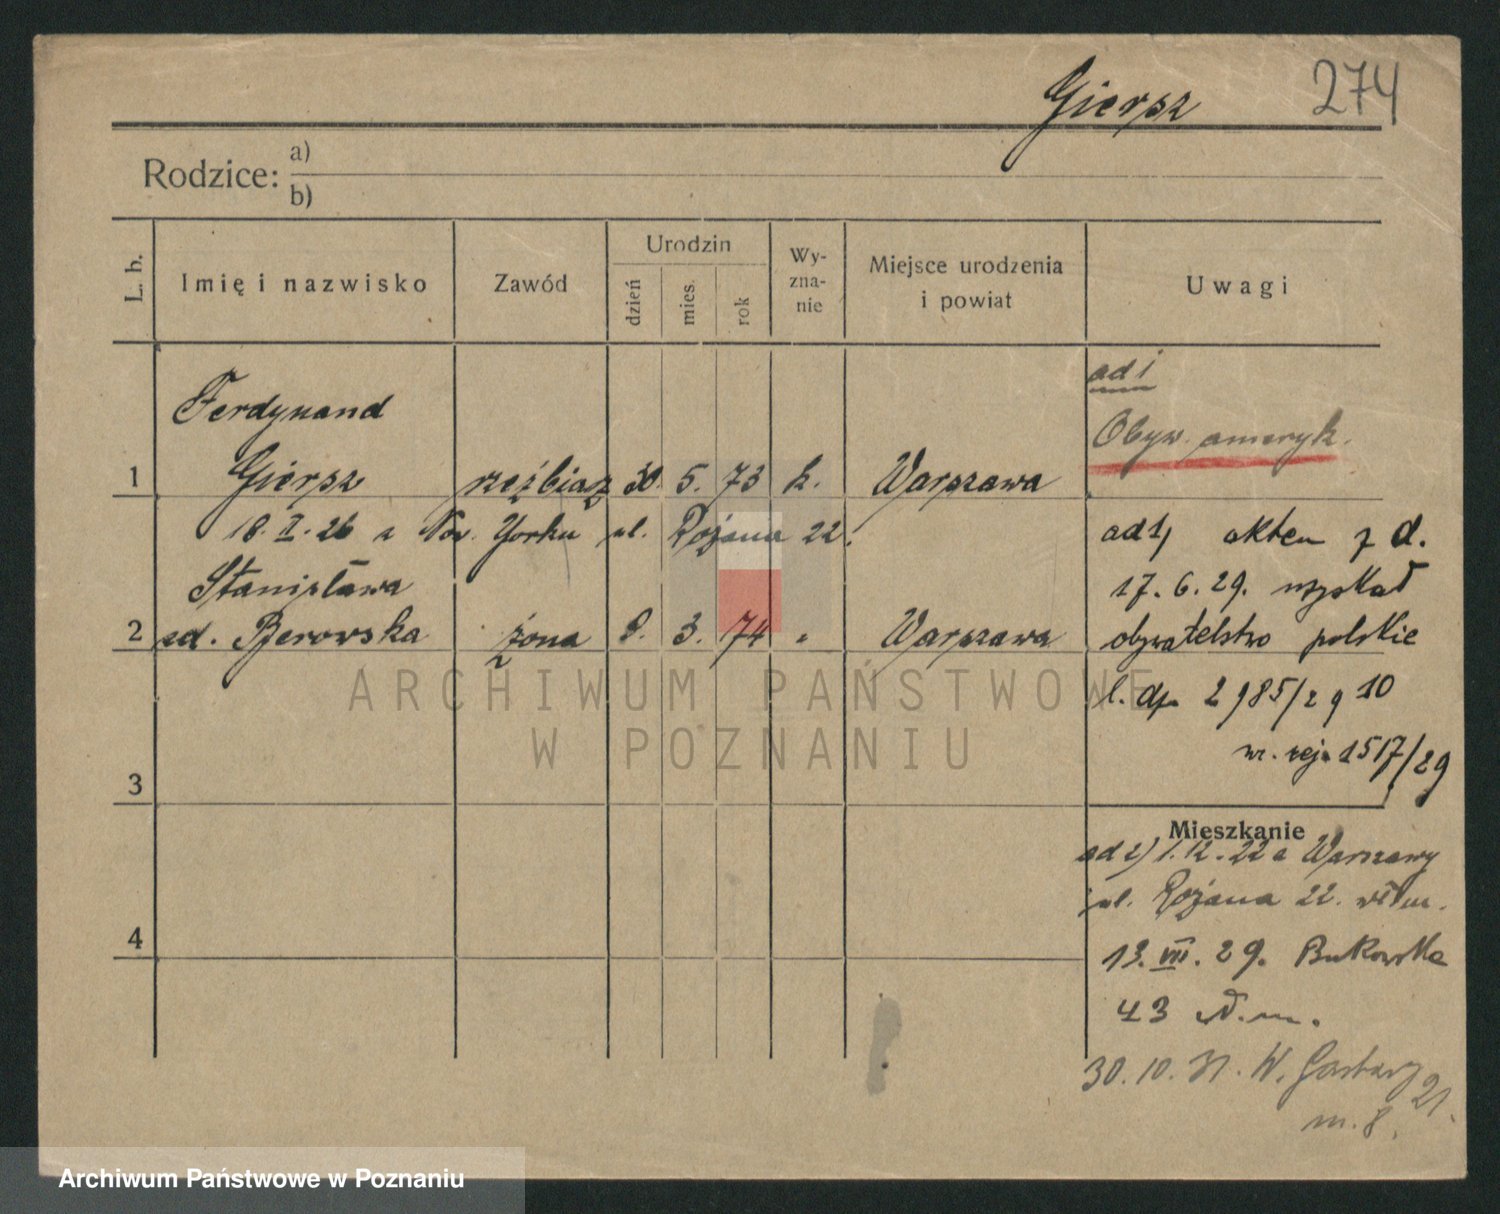 Giersz 274
Rodzice: a)
b)
L. b. Imię i nazwisko Zawód Urodzin dzień mies. rok Wy-zna-nie Miejsce urodzenia i powiat Uwagi
ad 1
Ferdynand
Obyw. ameryk.
1 Giersz rzeźbiarz 30. 5. 73 k. Warszawa
18. I. 26 a Now. Yorku ul. Różana 22.
ad 1) aktem z d.
Stanisława
17. 6. 29. uzyskał
2 zd. Berowska żona 9. 3. 74 " Warszawa
obywatelstwo polskie
ARCHIWUM PAŃSTWOWE
W POZNANIU
l. dz. 2985/29 10
nr. rej. 1517/29
3
Mieszkanie
ad 2) 1. 12. 22 a Warszawy
ul. Różana 22. wł. m.
4
13. VII. 29. Bukowska
43 m.
30. 10. 31. W. Garbary 21.
m. 8.
Archiwum Państwowe w Poznaniu